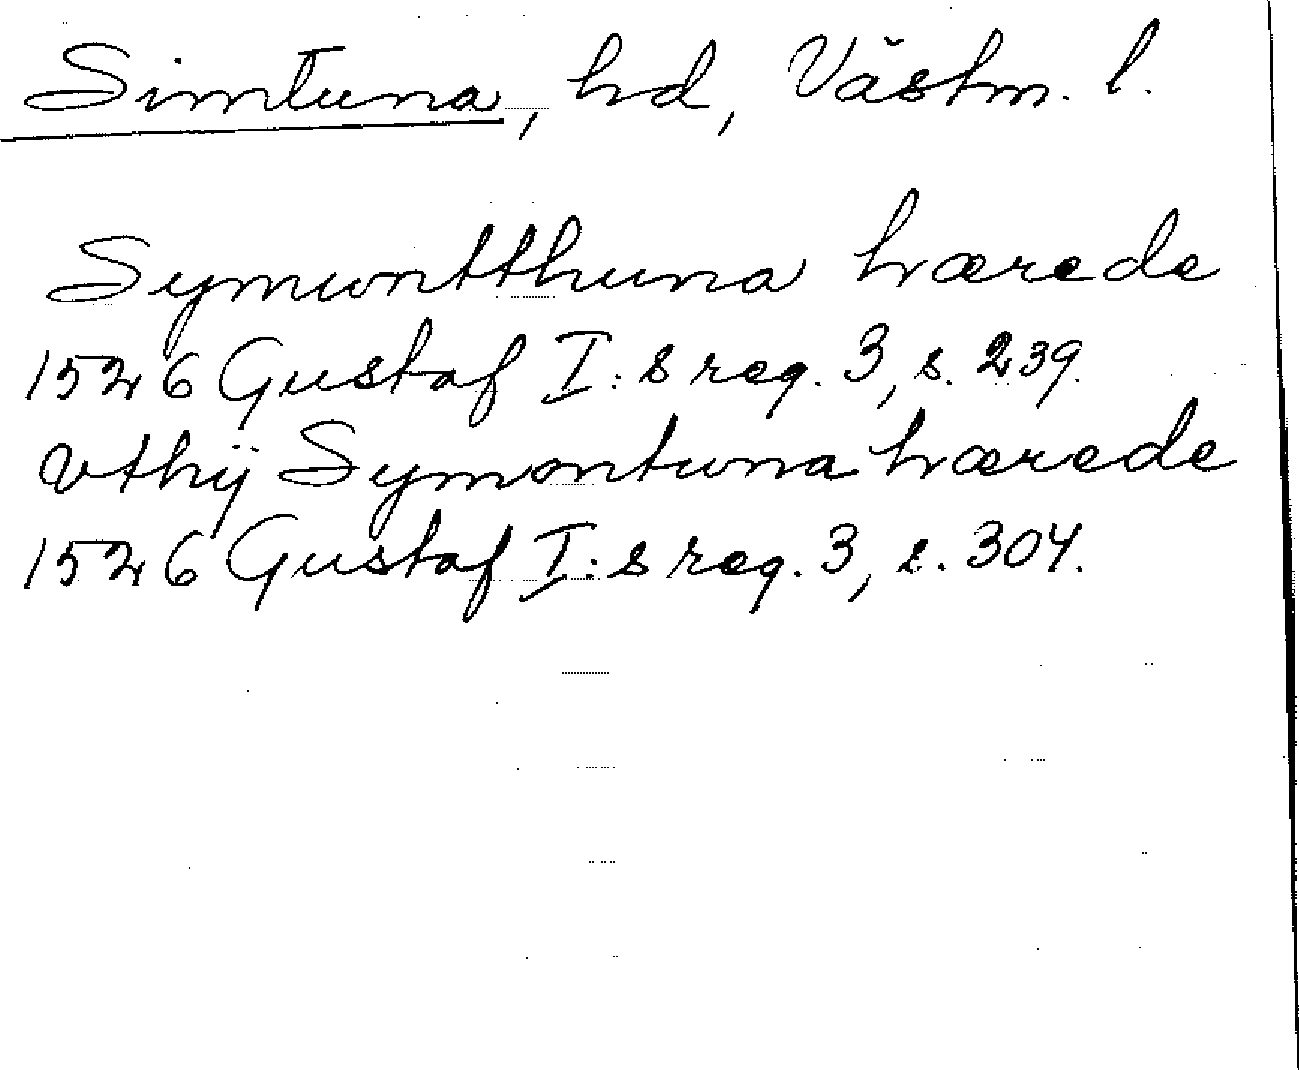 Simtuna, hd, Västm. l.
Symwntthuna hærede
1526 Gustaf I:s reg. 3, s. 239.
vthij Symontwna hærede
1526 Gustaf I:s reg. 3, s. 304.